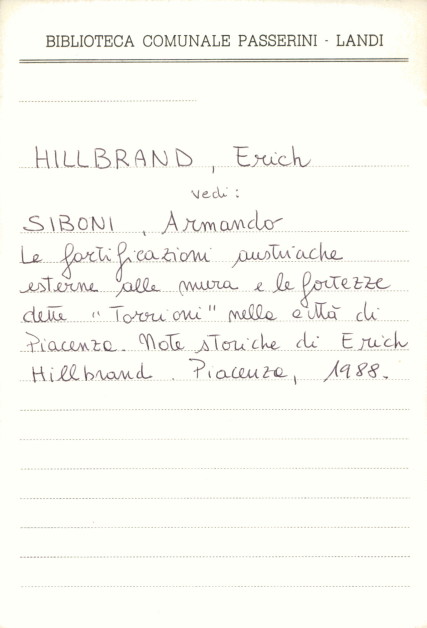 BIBLIOTECA COMUNALE PASSERINI - LANDI
HILLBRAND, Erich
vedi:
SIBONI, Armando
Le fortificazioni austriache
esterne alle mura e le fortezze
dette "Torrioni" nella città di
Piacenza. Note storiche di Erich
Hillbrand. Piacenza, 1988.